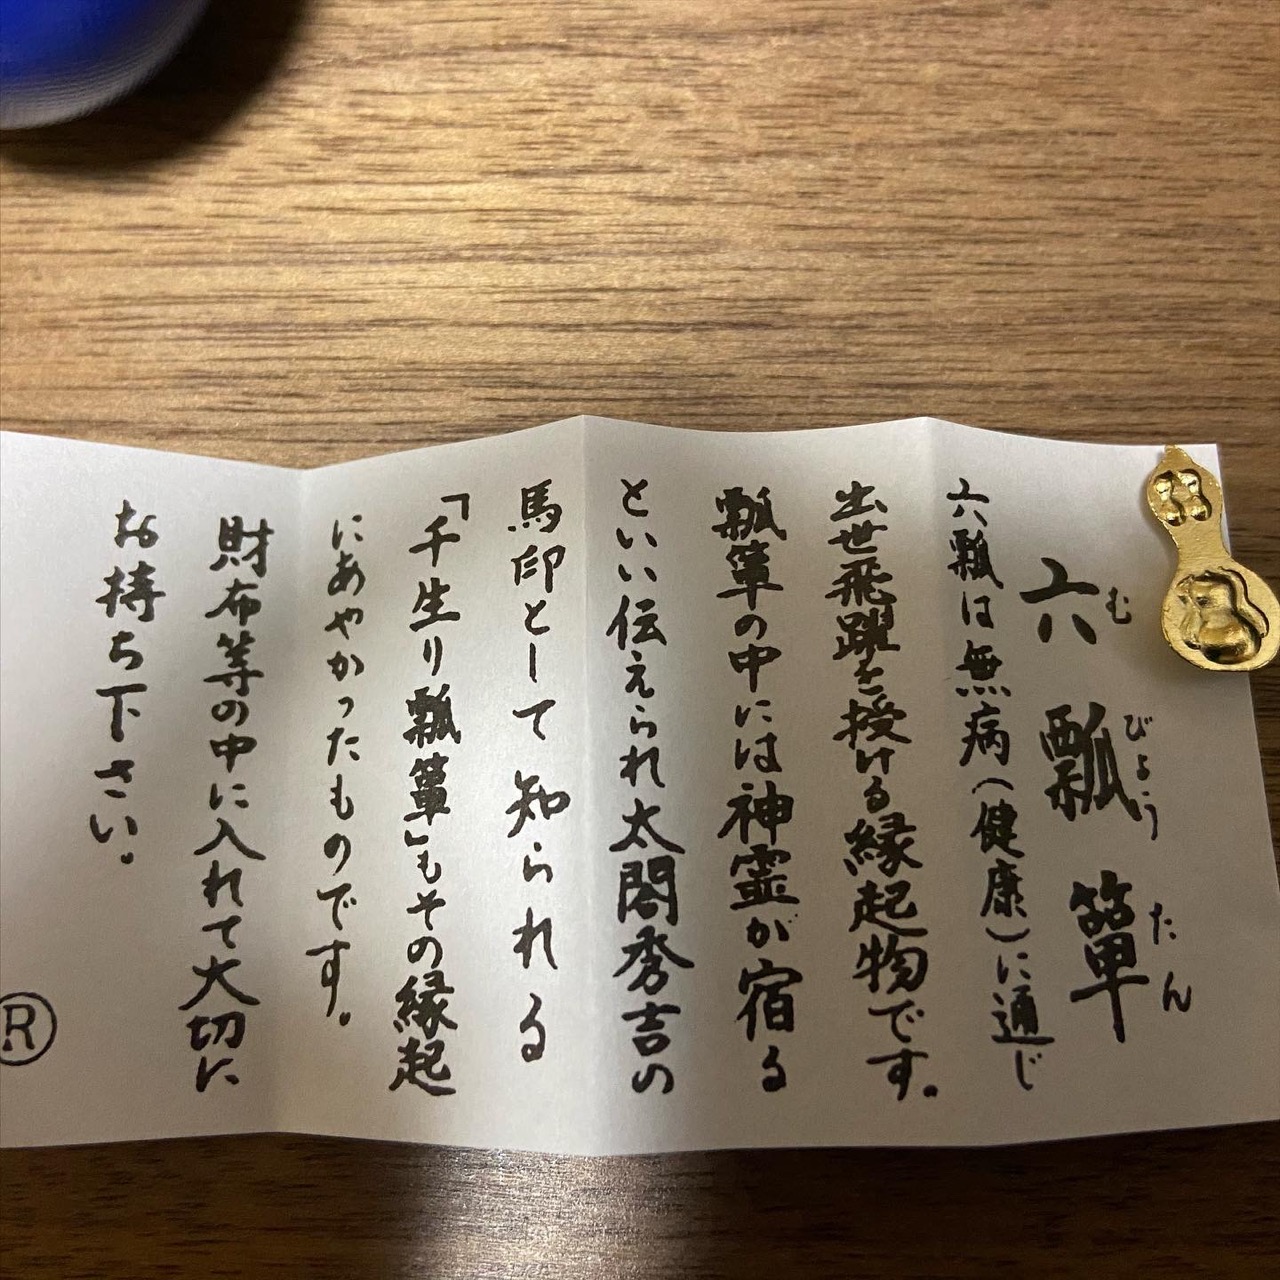 六瓢箪
むびょうたん
六瓢は無病(健康)に通じ
出世飛躍を授ける縁起物です。
瓢箪の中には神霊が宿る
といい伝えられ太閤秀吉の
馬印として知られる
「千生り瓢箪」もその縁起
にあやかったものです。
財布等の中に入れて大切に
お持ち下さい。
Ⓡ